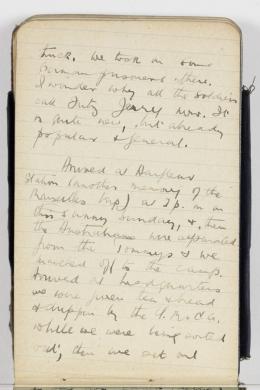 truck. We took on some
German prisoners there.
I wonder why all the soldiers
call Fritz Jerry now. It
is quite new, but already
popular & general.
Arrived at Harfleur
Station (another memory of the
Bruxelles trip) at 2 p.m. on
this sunny Sunday, & then
the Australians were separated
from the Tommys & we
marched off to the camp.
Arrived at headquarters
we were given tea & bread
& dripping by the Y.M.C.A.
while we were being sorted
out; then we set out